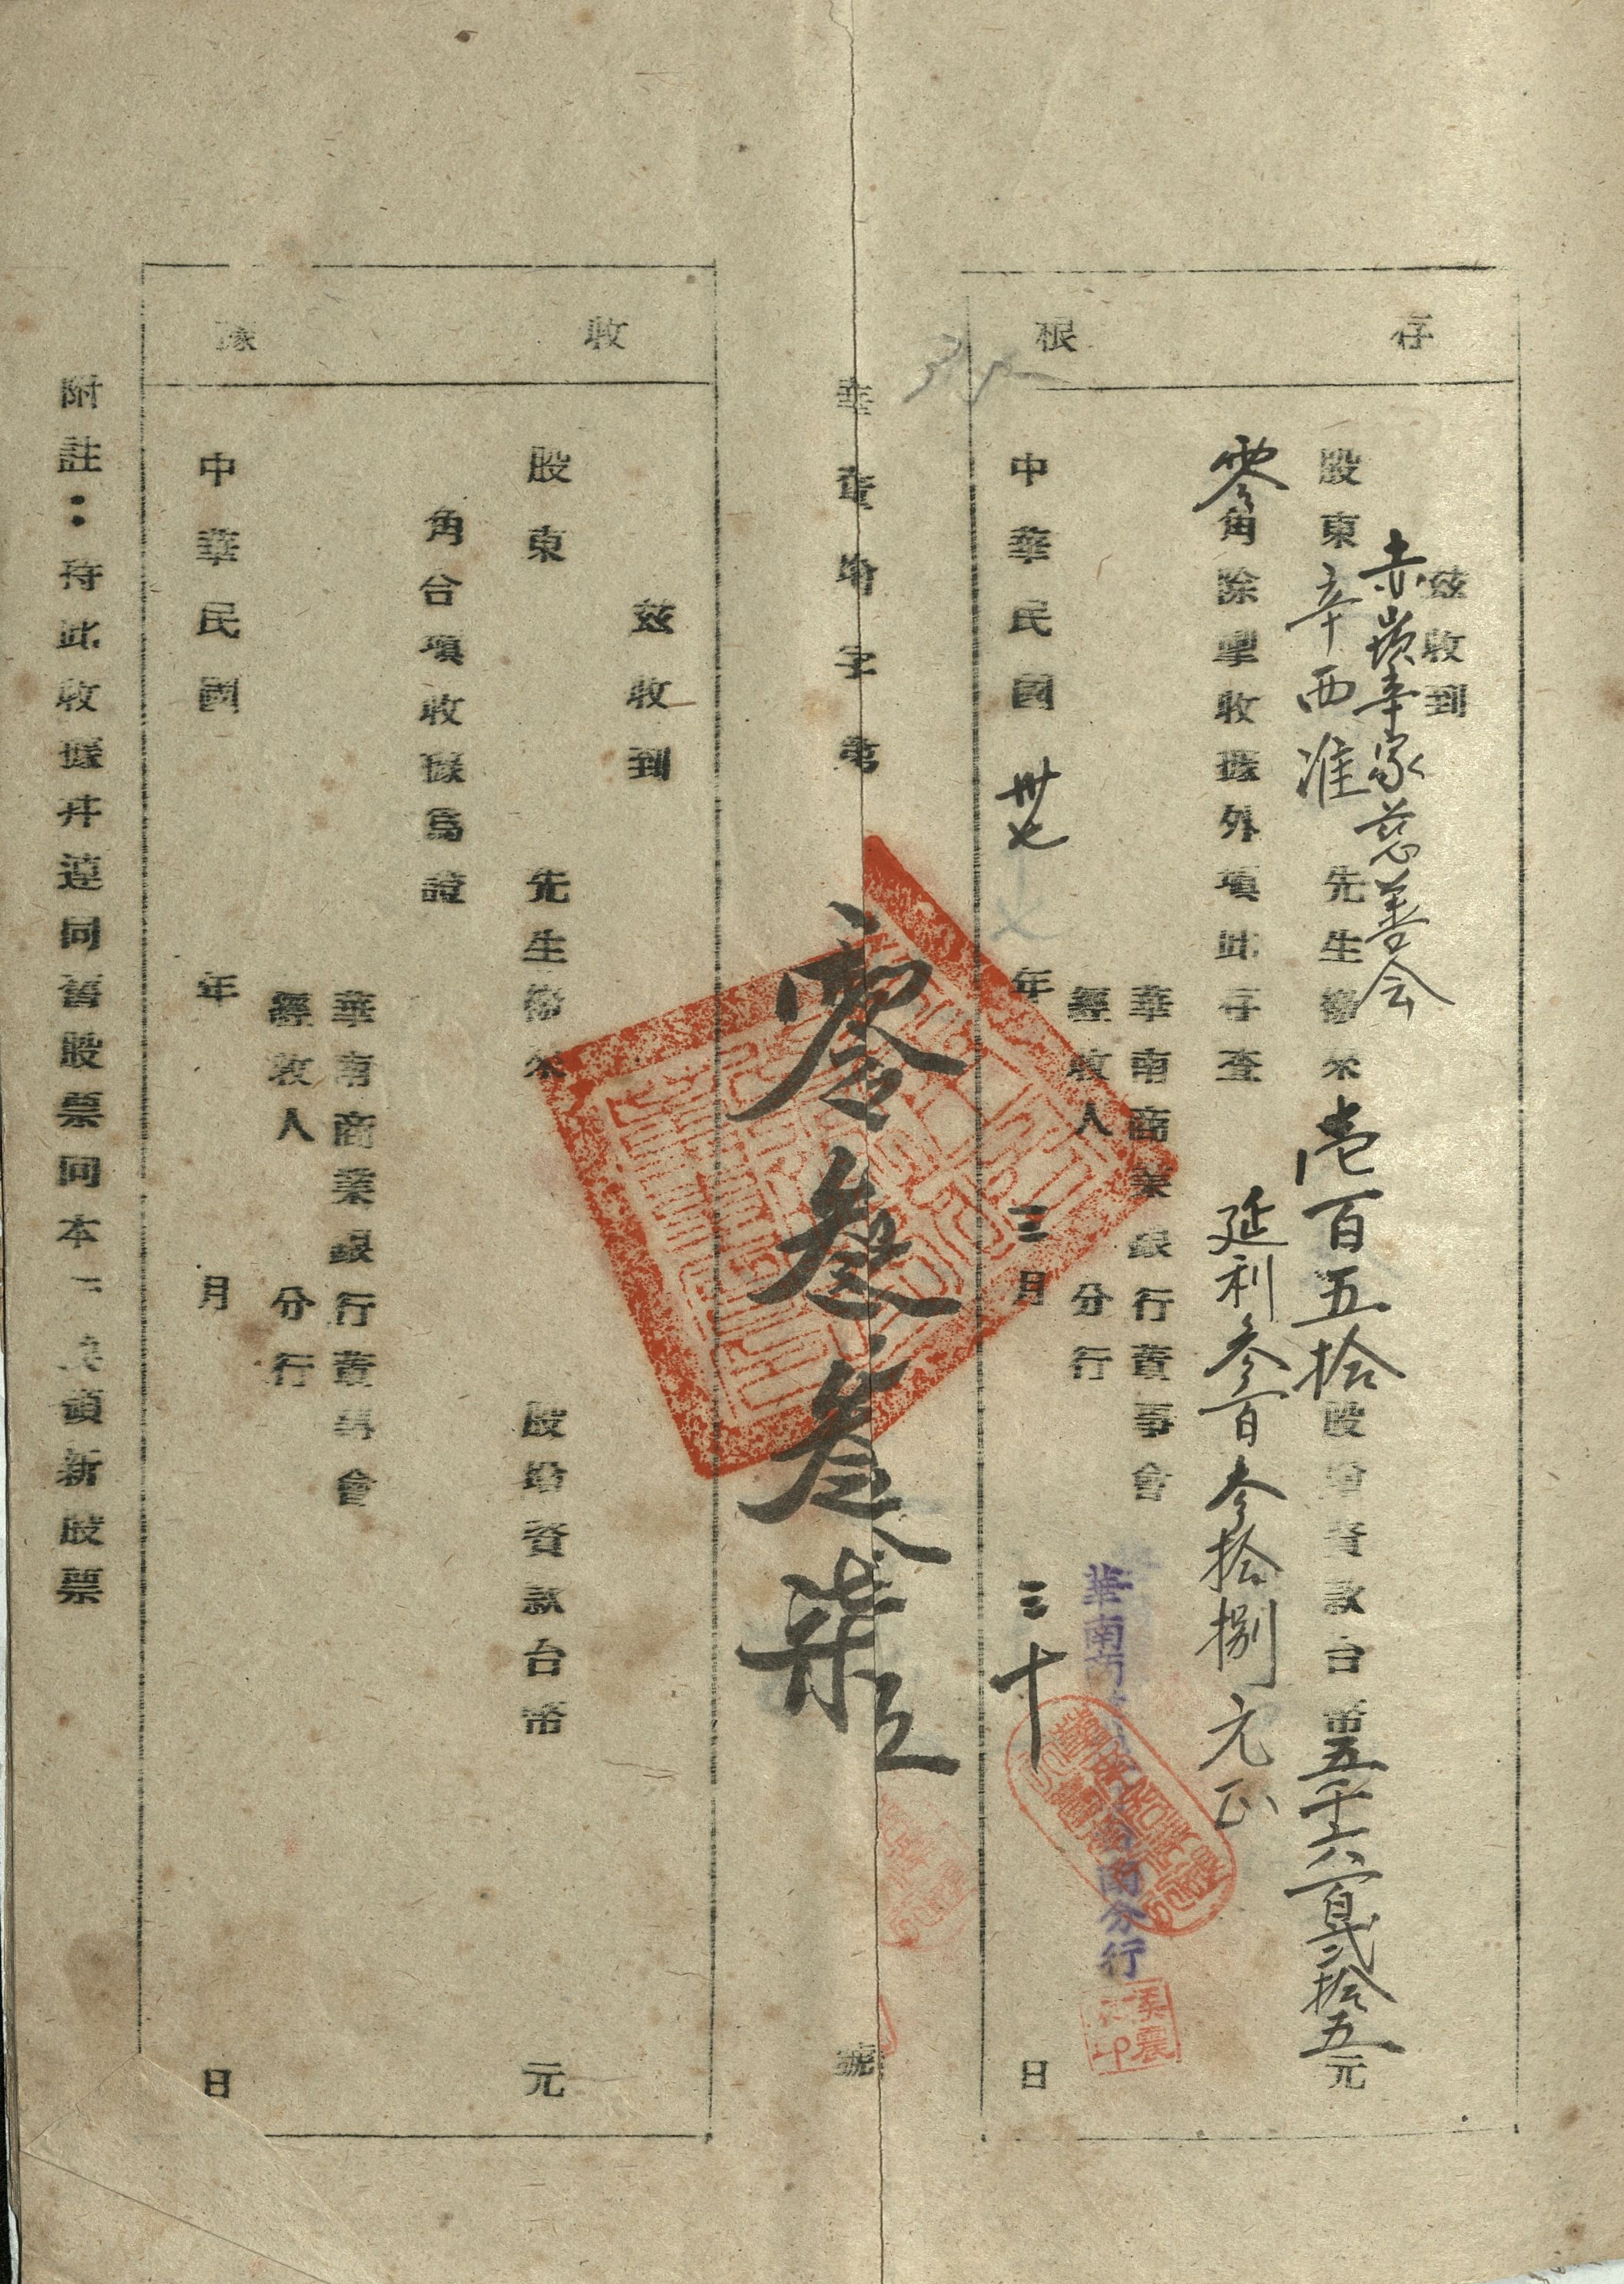 存根
茲收到
赤嶺辛家慈善会
股東辛西淮先生繳來壱百五拾股增資款台幣五千六百弍拾五元
零角除掣收據外填此存查
延利参百参拾捌元正
華南商業銀行董事會
經收人 分行
華南 台南分行
中華民國卅七年三月三十日
華董增字第零叁叁柒號
收據
茲收到
股東 先生繳來 股增資款台幣 元
角合填收據為證
華南商業銀行董事會
經收人 分行
中華民國 年 月 日
附註：持此收據并連同舊股票向本 換領新股票